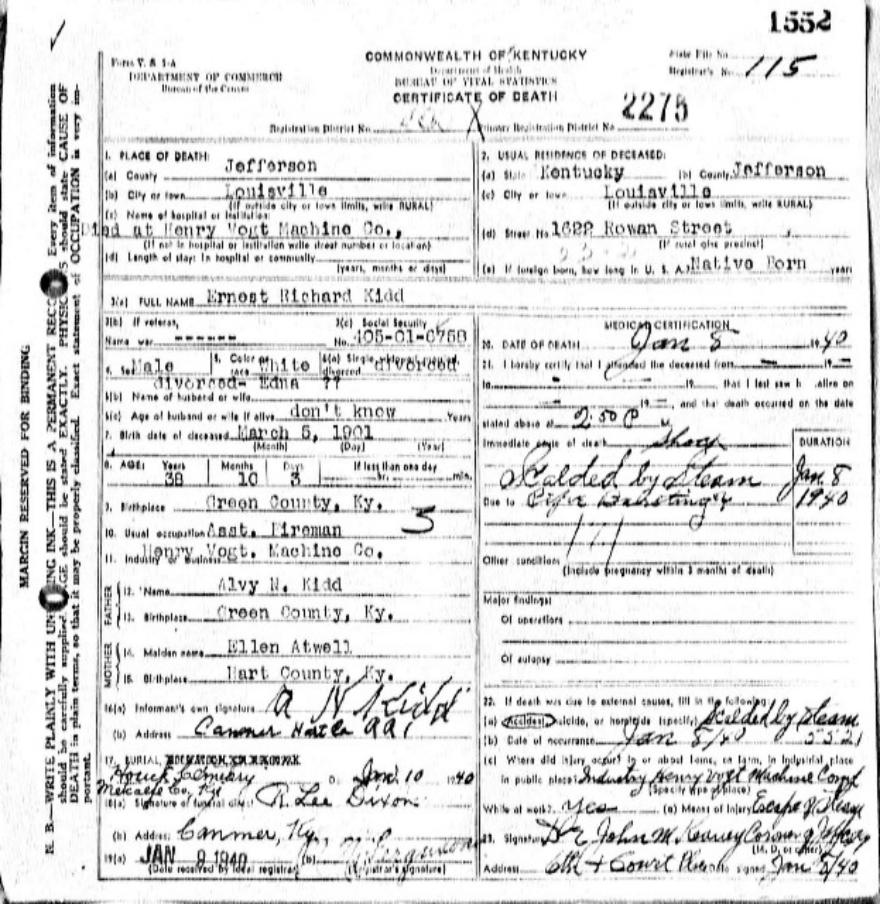 1552
Form V. S 1-A
DEPARTMENT OF COMMERCE
Bureau of the Census
COMMONWEALTH OF KENTUCKY
Department of Health
BUREAU OF VITAL STATISTICS
CERTIFICATE OF DEATH
State File No.
Registrar's No. 115
2275
Registration District No.
Primary Registration District No.
MARGIN RESERVED FOR BINDING
1. PLACE OF DEATH:
(a) County Jefferson
(b) City or town Louisville
(If outside city or town limits, write RURAL)
(c) Name of hospital or institution:
Died at Henry Vogt Machine Co.,
(If not in hospital or institution write street number or location)
(d) Length of stay: In hospital or community
(years, months or days)
2. USUAL RESIDENCE OF DECEASED:
(a) State Kentucky (b) County Jefferson
(c) City or town Louisville
(If outside city or town limits, write RURAL)
(d) Street No. 1622 Rowan Street
(If rural give precinct)
(e) If foreign born, how long in U. S. A. Native Born years
3(a) FULL NAME Ernest Richard Kidd
3(b) If veteran,
Name war
3(c) Social Security
No. 405-01-0758
4. Sex Male 5. Color or race White divorced
divorced- Edna ??
6(b) Name of husband or wife
6(c) Age of husband or wife if alive don't know Years
7. Birth date of deceased March 5, 1901
(Month) (Day) (Year)
8. AGE: Years Months Days If less than one day
38 10 3 hr. min.
9. Birthplace Green County, Ky.
10. Usual occupation Asst. Fireman
11. Industry or business Henry Vogt. Machine Co.
FATHER
12. Name Alvy N. Kidd
13. Birthplace Green County, Ky.
MOTHER
14. Maiden name Ellen Atwell
15. Birthplace Hart County, Ky.
16(a) Informant's own signature A N Kidd
(b) Address Canmer Hart Co RR1
17. BURIAL,
Jan. 10 1940
Metcalfe Co. Ky.
18(a) Signature of funeral director R. Lee Dixon
(b) Address Canmer, Ky
19(a) JAN 9 1940 (b)
(Date received by local registrar) (Registrar's signature)
MEDICAL CERTIFICATION
20. DATE OF DEATH Jan 8 1940
21. I hereby certify that I attended the deceased from 19
to 19 that I last saw h alive on
19 , and that death occurred on the date
stated above at 2:50 P M.
Immediate cause of death Shock
DURATION
Scalded by Steam Jan 8
Due to Pipe Bursting 1940
Other conditions
(Include pregnancy within 3 months of death)
Major findings:
Of operations
Of autopsy
22. If death was due to external causes, fill in the following:
(a) Accident, suicide, or homicide (specify) Scalded by steam
(b) Date of occurrence Jan 8/40
(c) Where did injury occur? in or about home, on farm, in industrial place
in public place? Industry Henry Vogt Machine
(Specify type of place)
While at work? yes (e) Means of Injury Escape of Steam
23. Signature Dr John M Keaney Coroner of Jefferson
(M. D. or other)
Address 6th + Court Place Date signed Jan 8/40